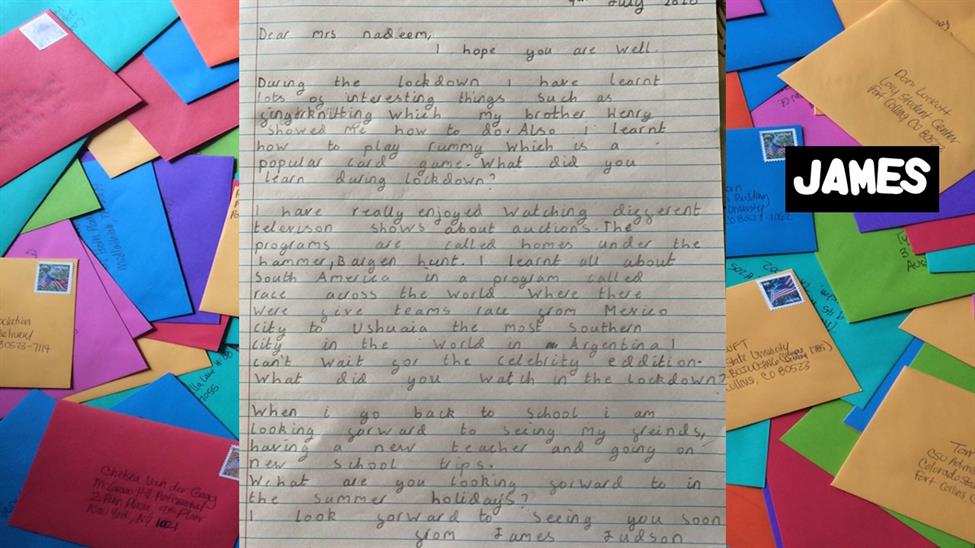 July 2020
Dear mrs nadeem,
I hope you are well.
During the lockdown I have learnt
lots of interesting things such as
fingerknitting which my brother Henry
showed me how to do. Also I learnt
how to play rummy which is a
popular card game. What did you
learn during lockdown?
I have really enjoyed watching different
televison shows about auctions. The
programs are called homes under the
hammer, Bargen hunt. I learnt all about
South America in a program called
race across the world where there
were five teams race from Mexico
city to Ushuaia the most southern
city in the world in Argentina I
can't wait for the celebrity eddition.
What did you watch in the lockdown?
When i go back to school i am
looking forward to seeing my freinds,
having a new teacher and going on
new school trips.
What are you looking forward to in
the summer holidays?
I look forward to seeing you soon
from James Judson
JAMES
Don Luckett
Lory Student Center
Fort Collins CO 80523
Collins, CO 80523
State University
Chelsea Van der Gaag
New York, NY
80523-7114